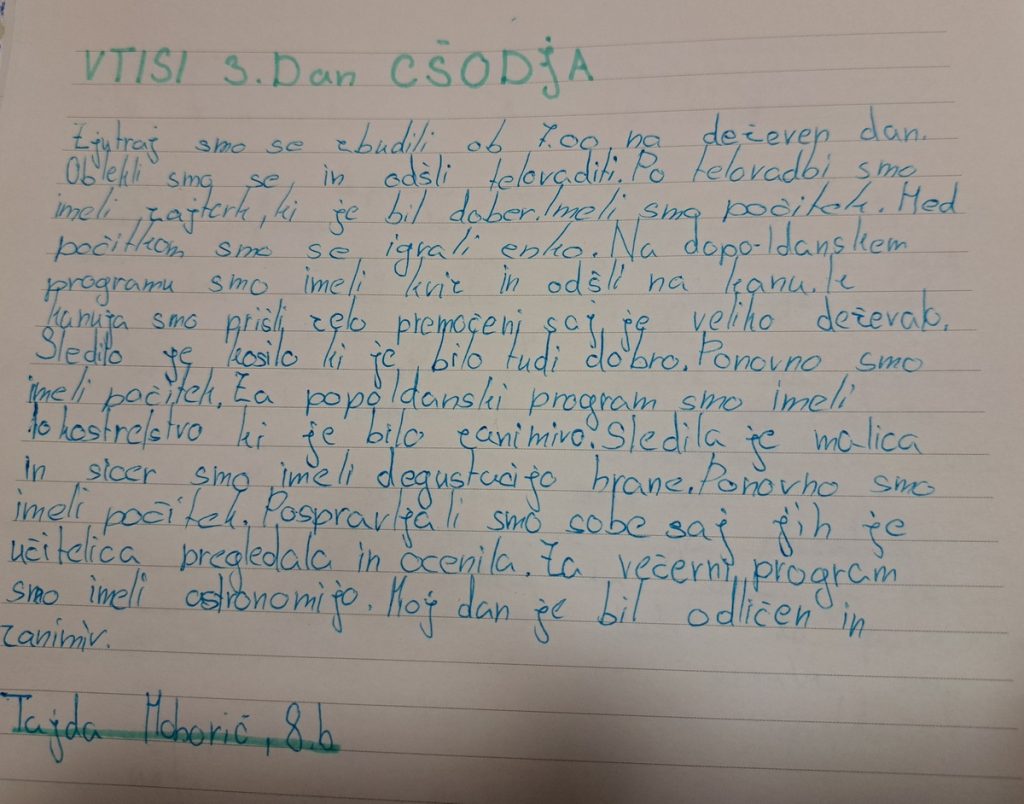 VTISI 3. Dan CŠODjA
Zjutraj smo se zbudili ob 7.00, na deževen dan.
Oblekli smo se, in odšli telovaditi. Po telovadbi smo
imeli zajterk, ki je bil dober. Imeli smo počitek. Med
počitkom smo se igrali enko. Na dopoldanskem
programu smo imeli kviz in odšli na kanu. Iz
kanuja smo prišli zelo premočeni saj je veliko deževalo.
Sledilo je kosilo ki je bilo tudi dobro. Ponovno smo
imeli počitek. Za popoldanski program smo imeli
lokostrelstvo ki je bilo zanimivo. Sledila je malica
in sicer smo imeli degustacijo hrane. Ponovno smo
imeli počitek. Pospravljali smo sobe saj jih je
učitelica pregledala in ocenila. Za večerni program
smo imeli astronomijo. Moj dan je bil odličen in
zanimiv.
Tajda Moborič, 8.b